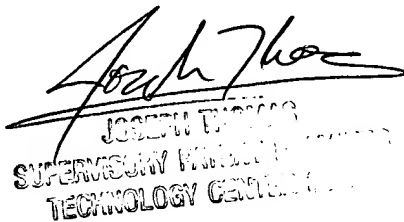 Joseph Thomas
JOSEPH THOMAS
SUPERVISORY
TECHNOLOGY CENTER